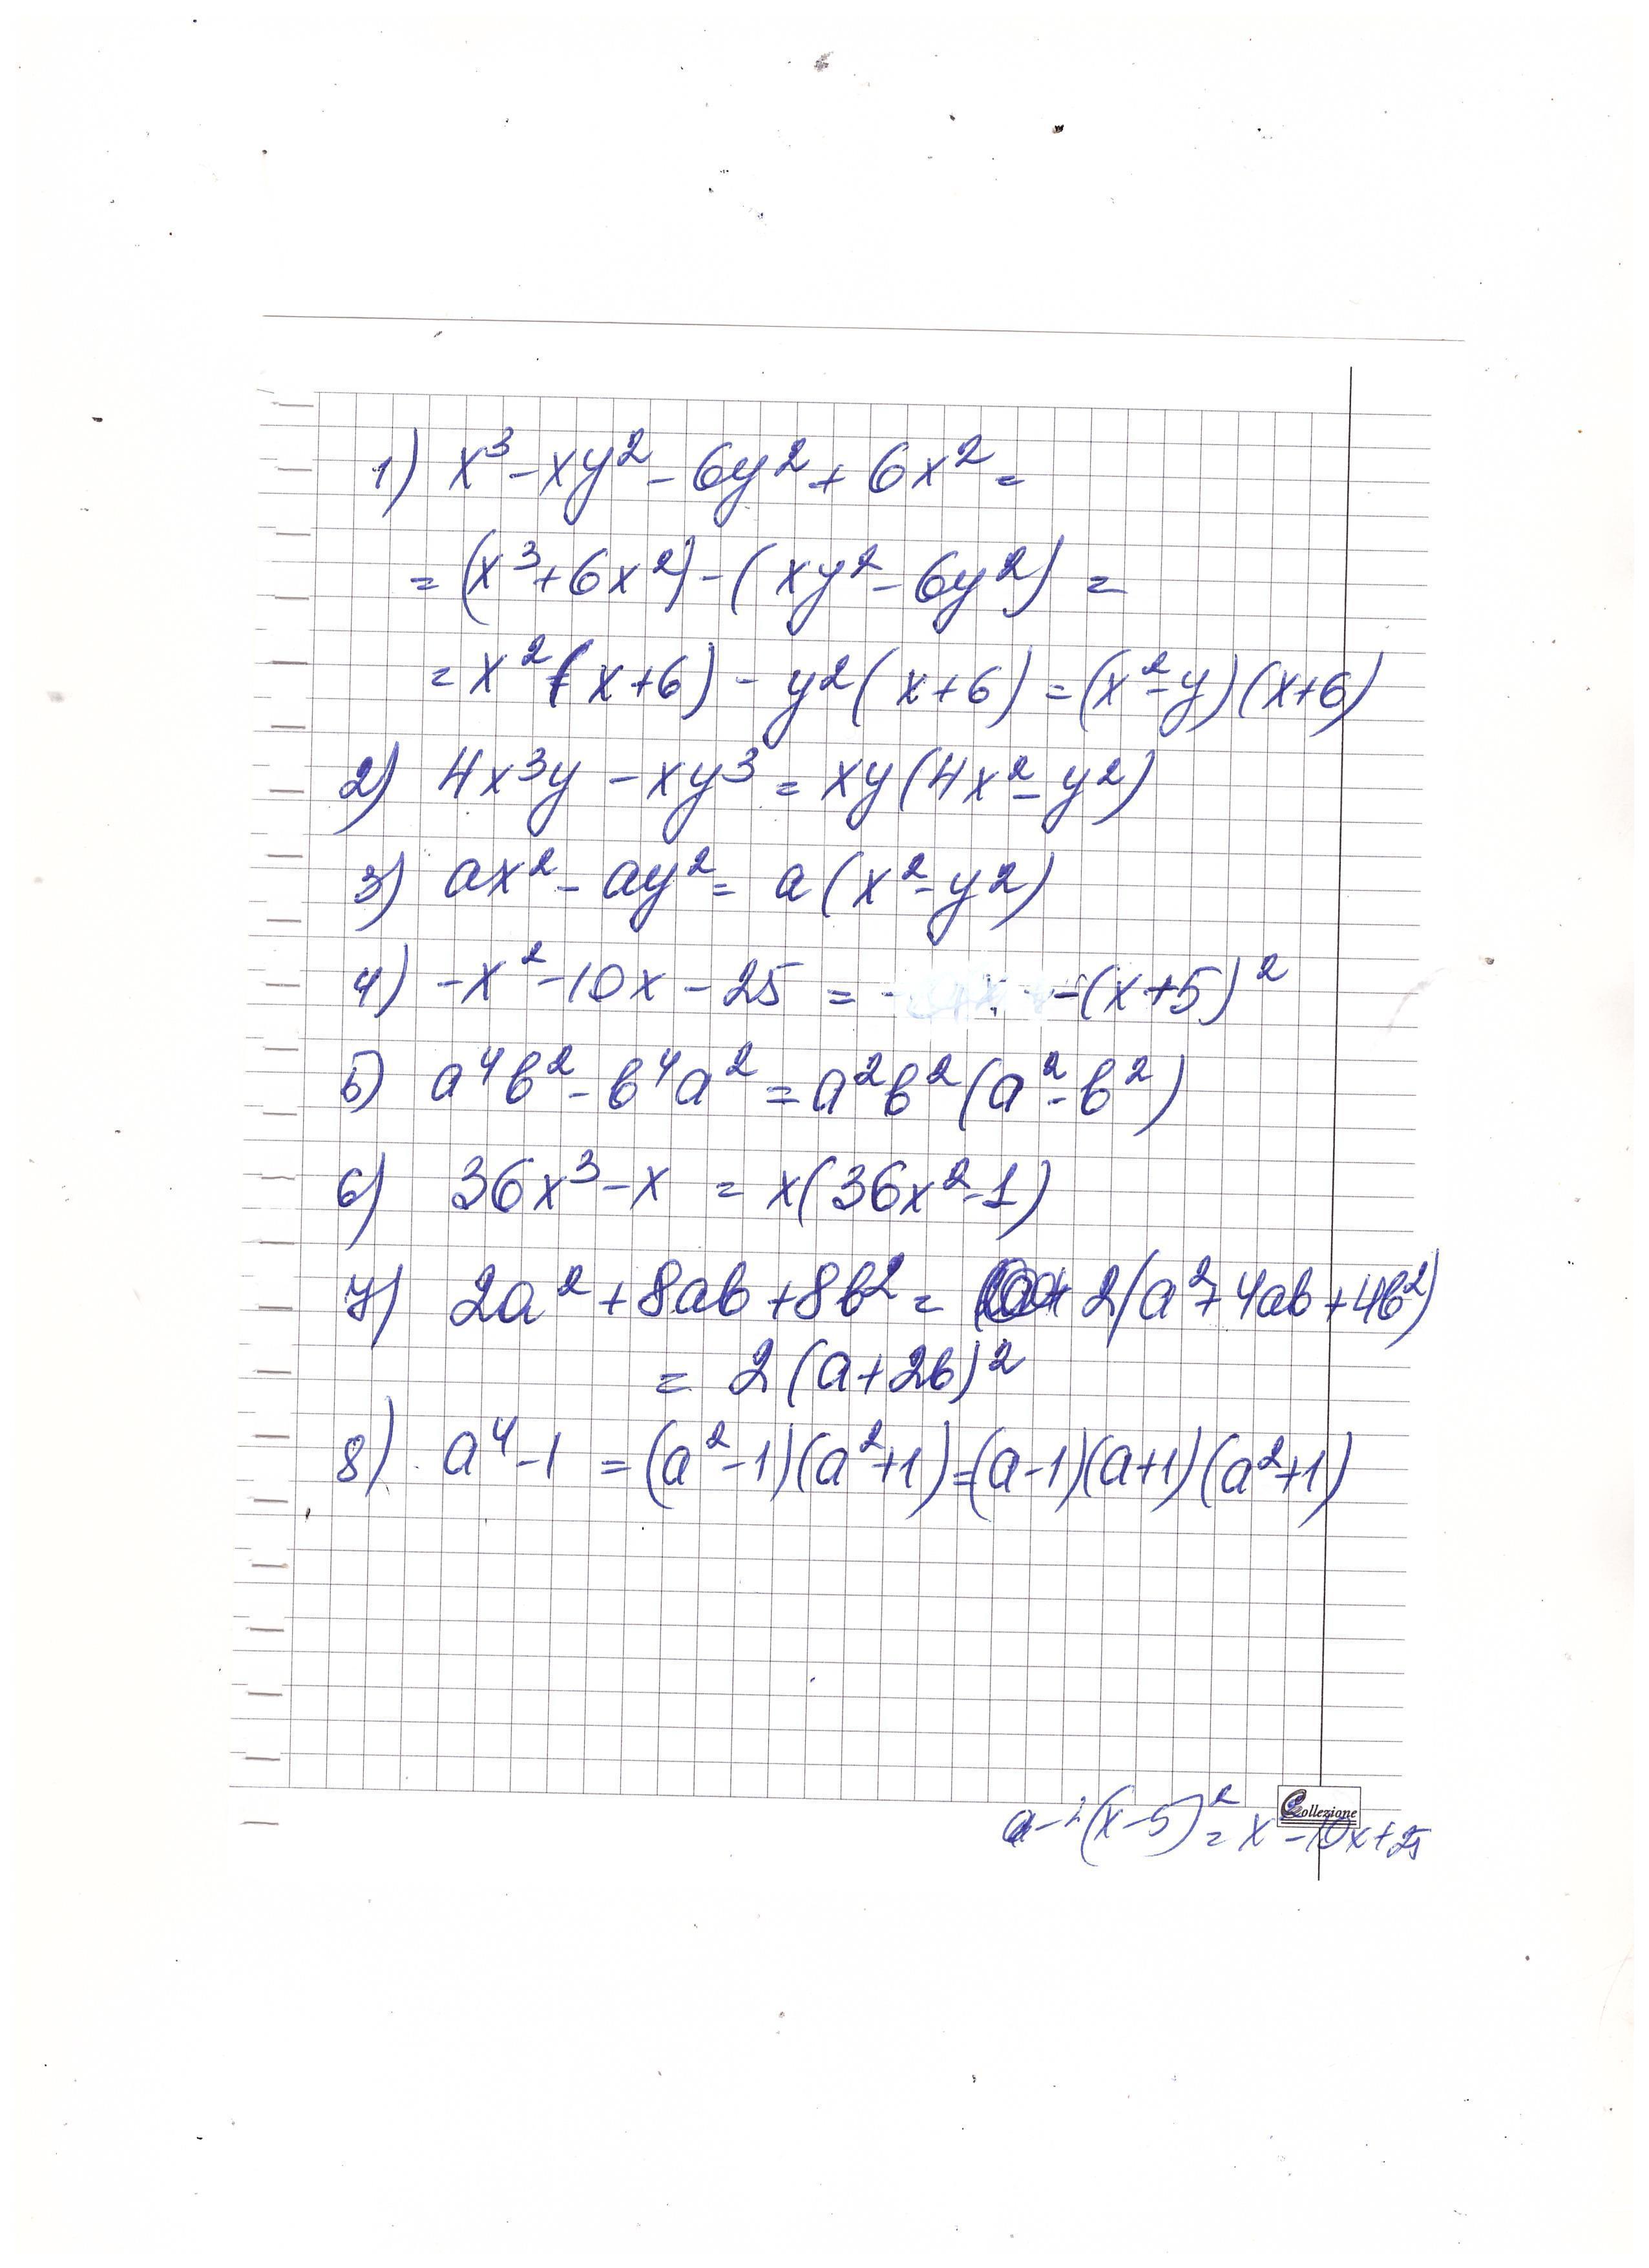 1) x³ - xy² - 6y² + 6x² =
= (x³ + 6x²) - (xy² - 6y²) =
= x² (x+6) - y² (x+6) = (x² - y)(x+6)
2) 4x³y - xy³ = xy(4x² - y²)
3) ax² - ay² = a(x² - y²)
4) -x² - 10x - 25 = -(x+5)²
5) a⁴b² - b⁴a² = a²b²(a² - b²)
6) 36x³ - x = x(36x² - 1)
7) 2a² + 8ab + 8b² = 2(a² + 4ab + 4b²)
= 2(a+2b)²
8) a⁴ - 1 = (a² - 1)(a² + 1) = (a-1)(a+1)(a²+1)
Collezione
(x-5)² = x² - 10x + 25